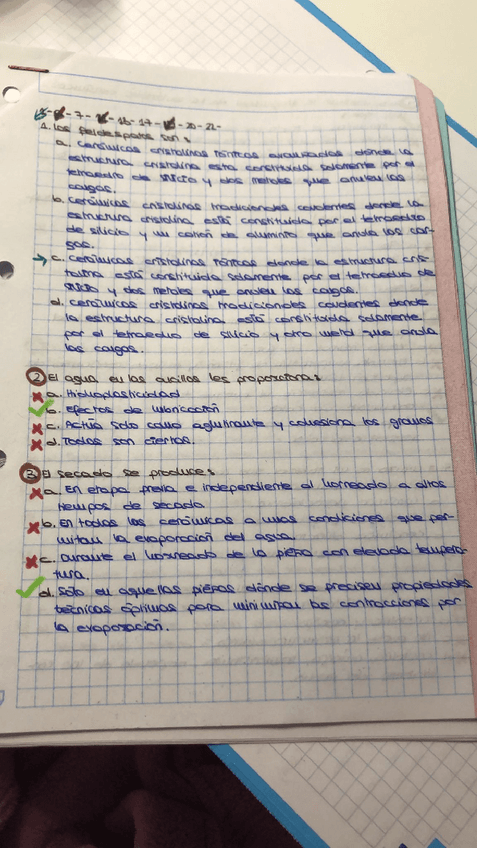 - 7 - - 16 - 17 - - 20 - 22 -
1. Los feldespatos son:
a. Cerámicas cristalinas iónicas avanzadas dónde la
estructura cristalina esta constituida solamente por el
tetraedro de silicio y dos metales que anulan las
cargas.
b. Cerámicas cristalinas tradicionales covalentes donde la
estructura cristalina está constituida por el tetraedro
de silicio y un catión de aluminio que anula las car-
gas.
→ c. Cerámicas cristalinas iónicas donde la estructura cris-
talina está constituida solamente por el tetraedro de
silicio y dos metales que anulen las cargas.
d. Cerámicas cristalinas tradicionales covalentes donde
la estructura cristalina está constituida solamente
por el tetraedro de silicio y otro metal que anula
las cargas.
2 El agua en las arcillas les proporciona:
x a. Hidroplasticidad
✓ b. Efectos de lubricación
x c. Actúa solo como aglutinante y cohesiona los granos
x d. Todas son ciertas.
3 El secado se produce:
x a. En etapa previa e independiente al horneado a altos
tiempos de secado
x b. En todas las cerámicas a unas condiciones que per-
mitan la evaporación del agua.
x c. Durante el horneado de la pieza con elevada tempera-
tura.
✓ d. Sólo en aquellas piezas dónde se precisen propiedades
técnicas óptimas para minimizar las contracciones por
la evaporación.